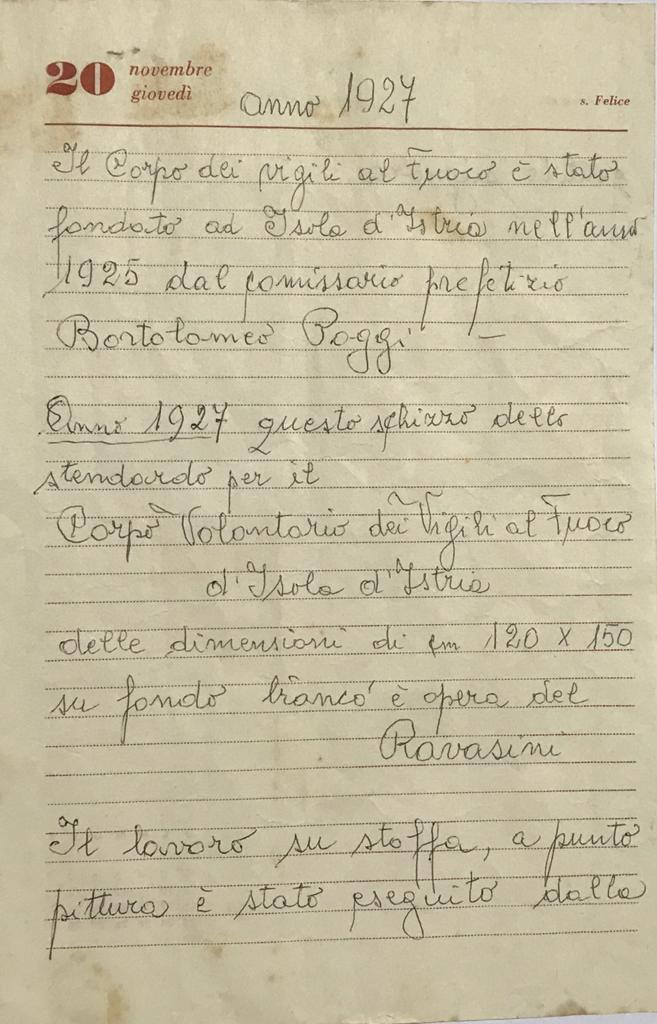 20 novembre
giovedì
anno 1927
s. Felice
Il Corpo dei vigili al Fuoco è stato
fondato ad Isola d'Istria nell'anno
1925 dal comissario prefetizio
Bortolomeo Poggi —
Anno 1927 questo schizzo dello
stendardo per il
Corpo Volontario dei Vigili al Fuoco
d'Isola d'Istria
delle dimensioni di cm 120 X 150
su fondo bianco è opera del
Ravasini
Il lavoro su stoffa, a punto
pittura è stato eseguito dalla